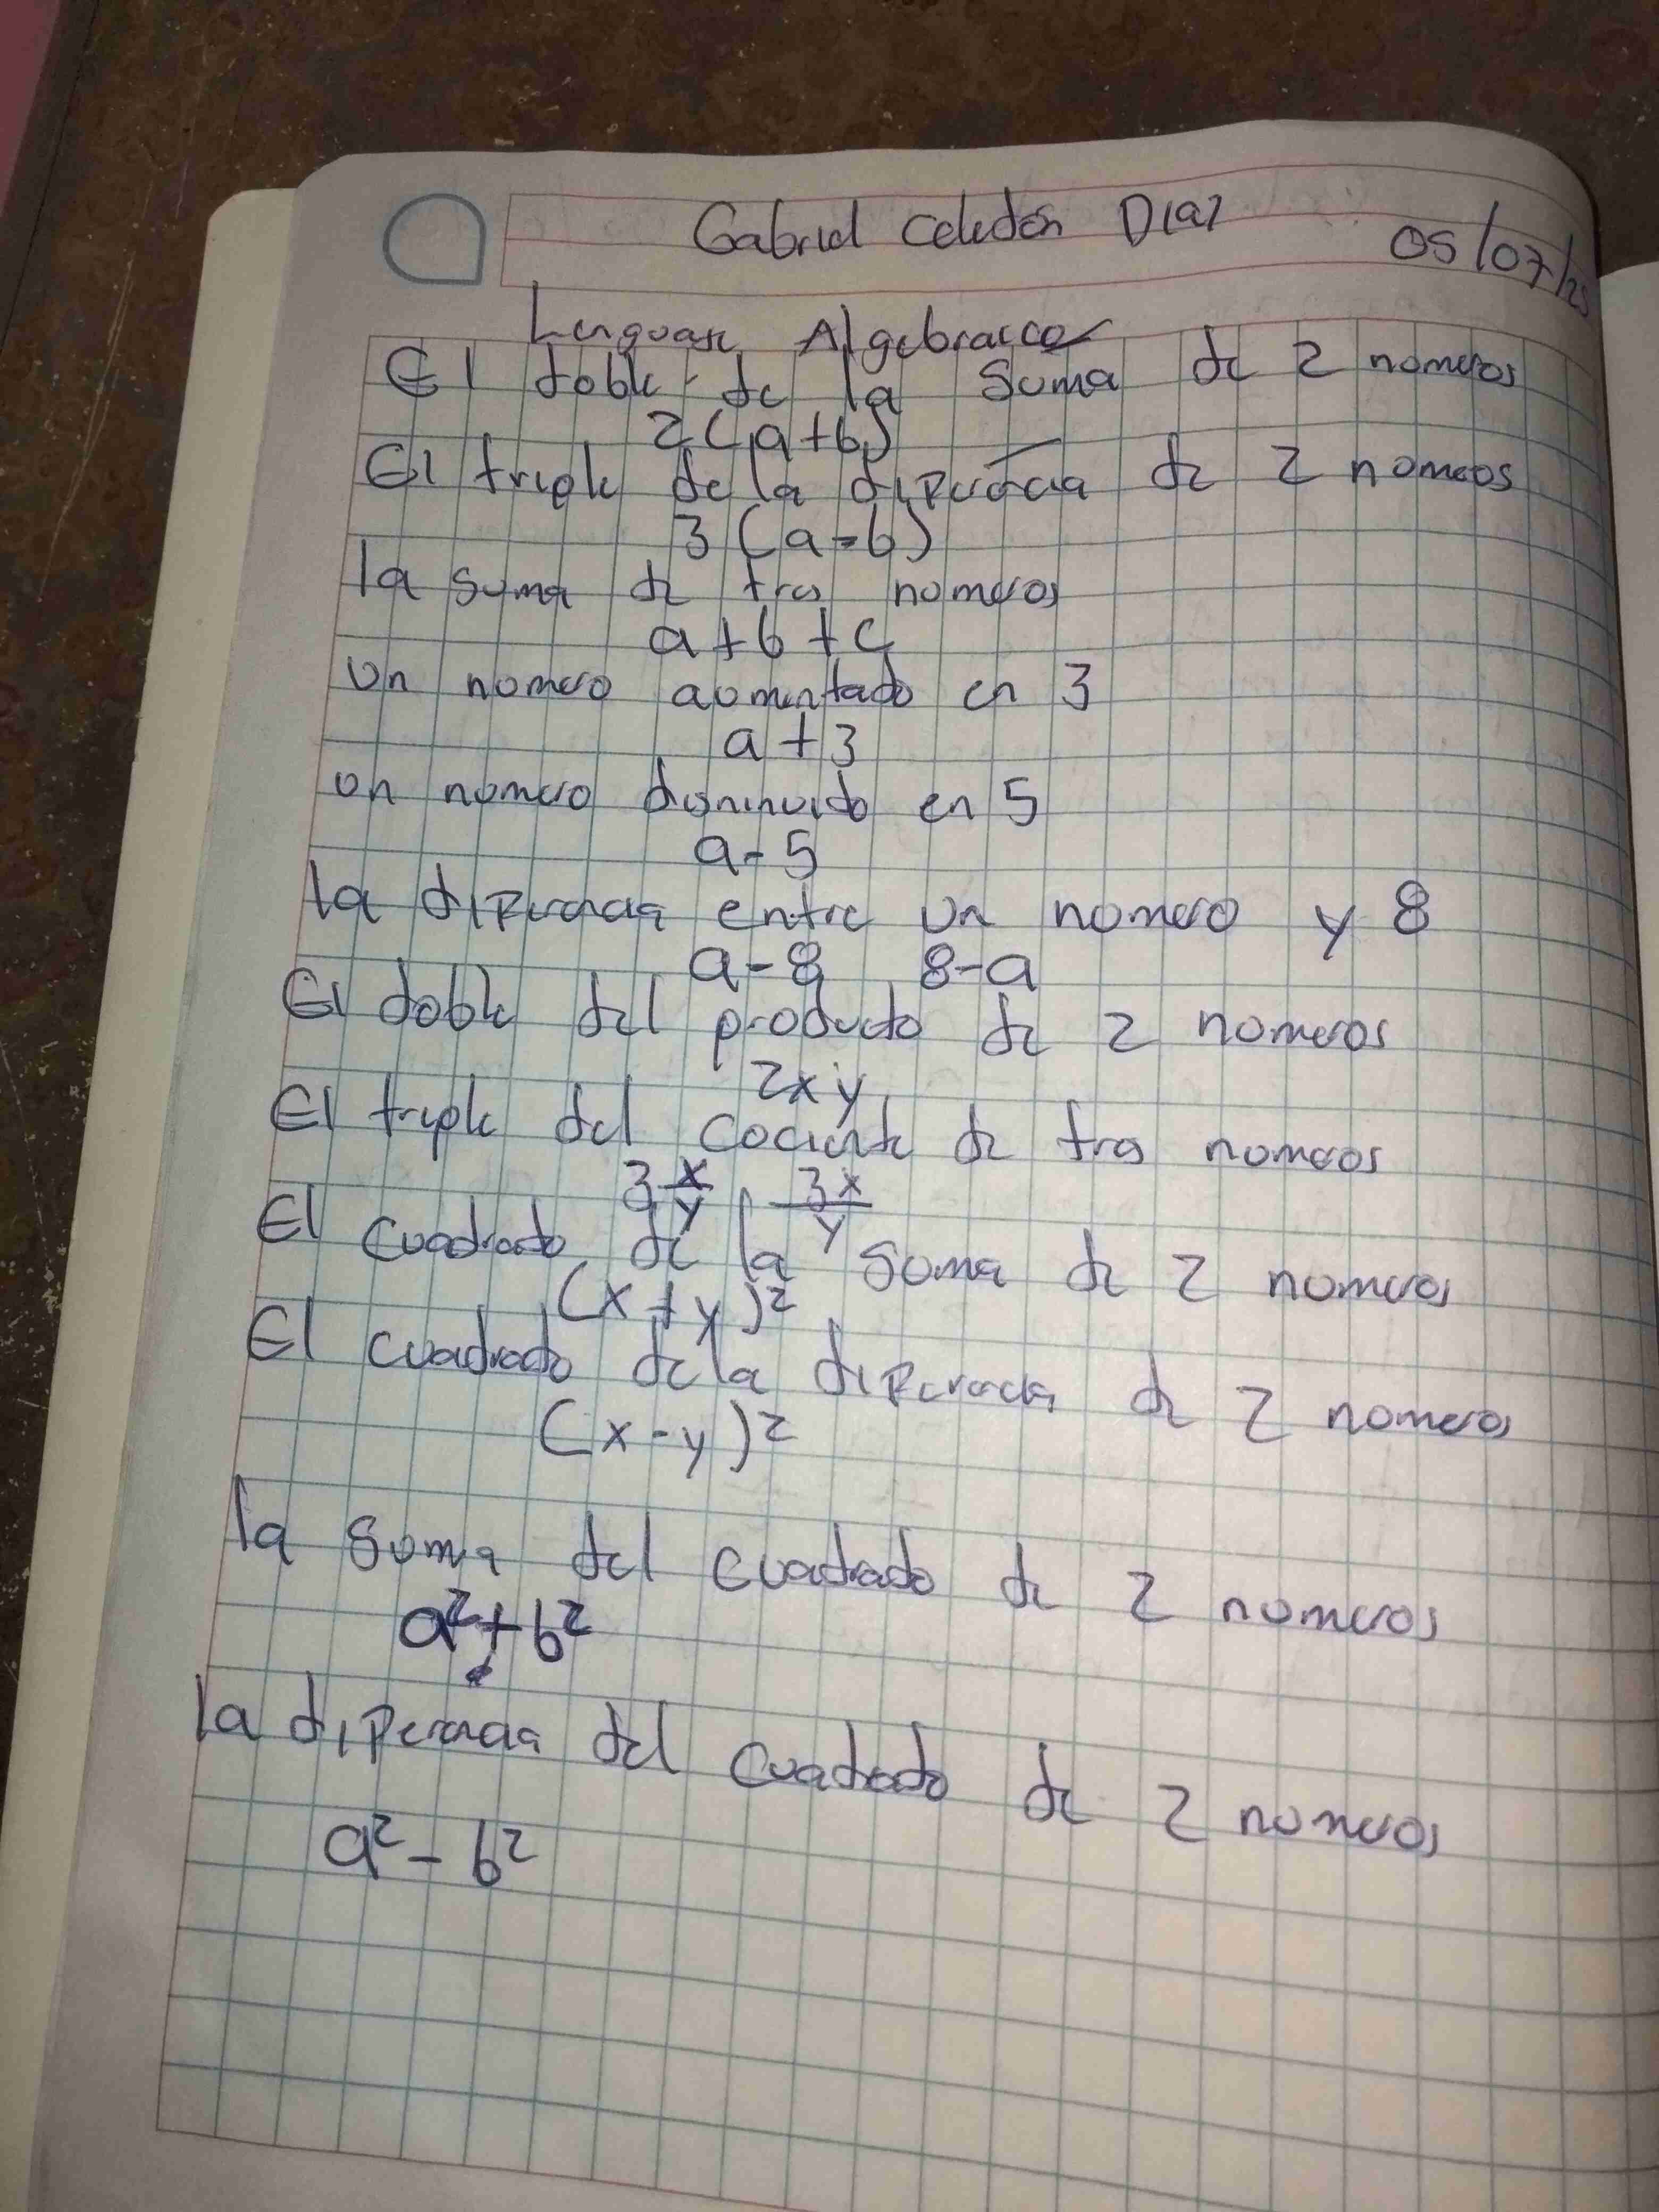 Gabriel Celedón Diaz
05/07/25
Lenguaje Algebraico
El doble de la suma de 2 numeros
2(a+b)
El triple de la diferencia de 2 numeros
3(a-b)
la suma de tres numeros
a+b+c
un numero aumentado en 3
a+3
un numero disminuido en 5
a-5
la diferencia entre un numero y 8
a-8 8-a
El doble del producto de 2 numeros
2xy
El triple del cociente de tres numeros
3 x/y 3x/y
El cuadrado de la suma de 2 numeros
(x+y)²
El cuadrado de la diferencia de 2 numeros
(x-y)²
la suma del cuadrado de 2 numeros
a²+b²
la diferencia del cuadrado de 2 numeros
a²-b²